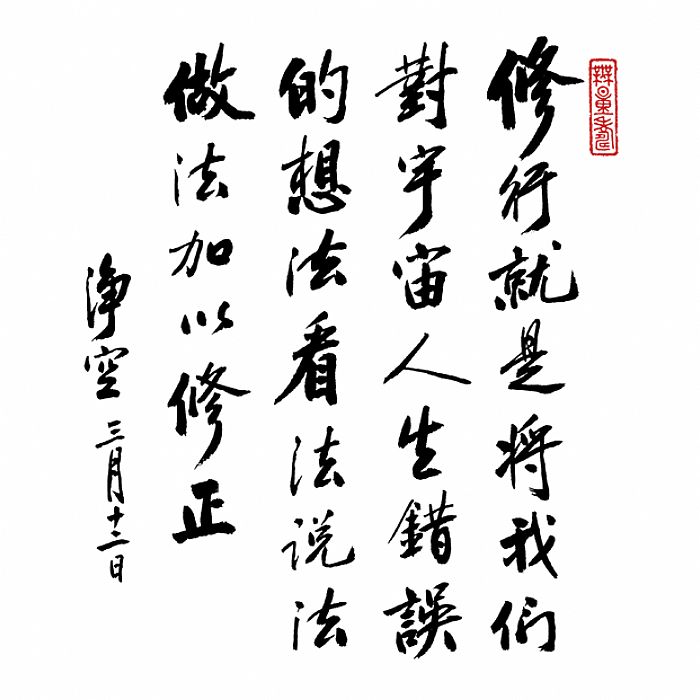 修行就是將我们
對宇宙人生錯誤
的想法看法说法
做法加以修正
淨空 三月十二日